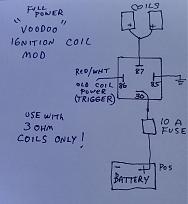 FULL
POWER
COILS
"VOODOO"
IGNITION COIL
MOD
+
+
87
RED/WHT
86
85
OLD COIL
POWER
(TRIGGER)
30
USE WITH
3 OHM
COILS ONLY!
10 A
FUSE
POS
- +
BATTERY